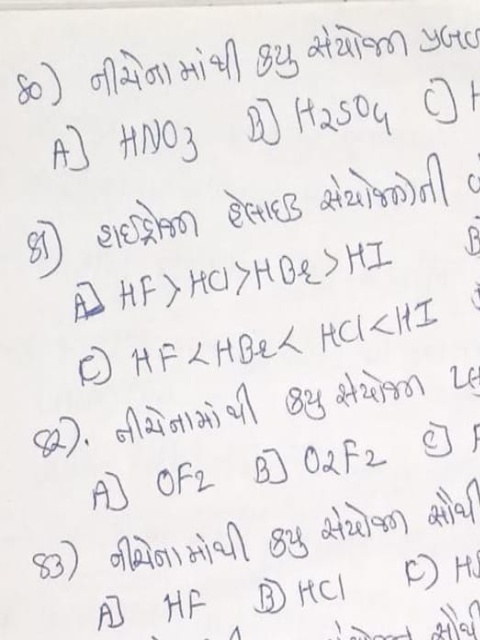 80) નીચેનામાંથી કયુ સંયોજન પ્રબળ
A] HNO3 B] H2SO4 C] H
81) હાઇડ્રોજન હેલાઇડ સંયોજનોની
A] HF > HCl > HBr > HI B]
C] HF < HBr < HCl < HI
82). નીચેનામાંથી કયુ સંયોજન
A] OF2 B] O2F2 C]
83) નીચેનામાંથી કયુ સંયોજન સૌથી
A] HF B] HCl C] H